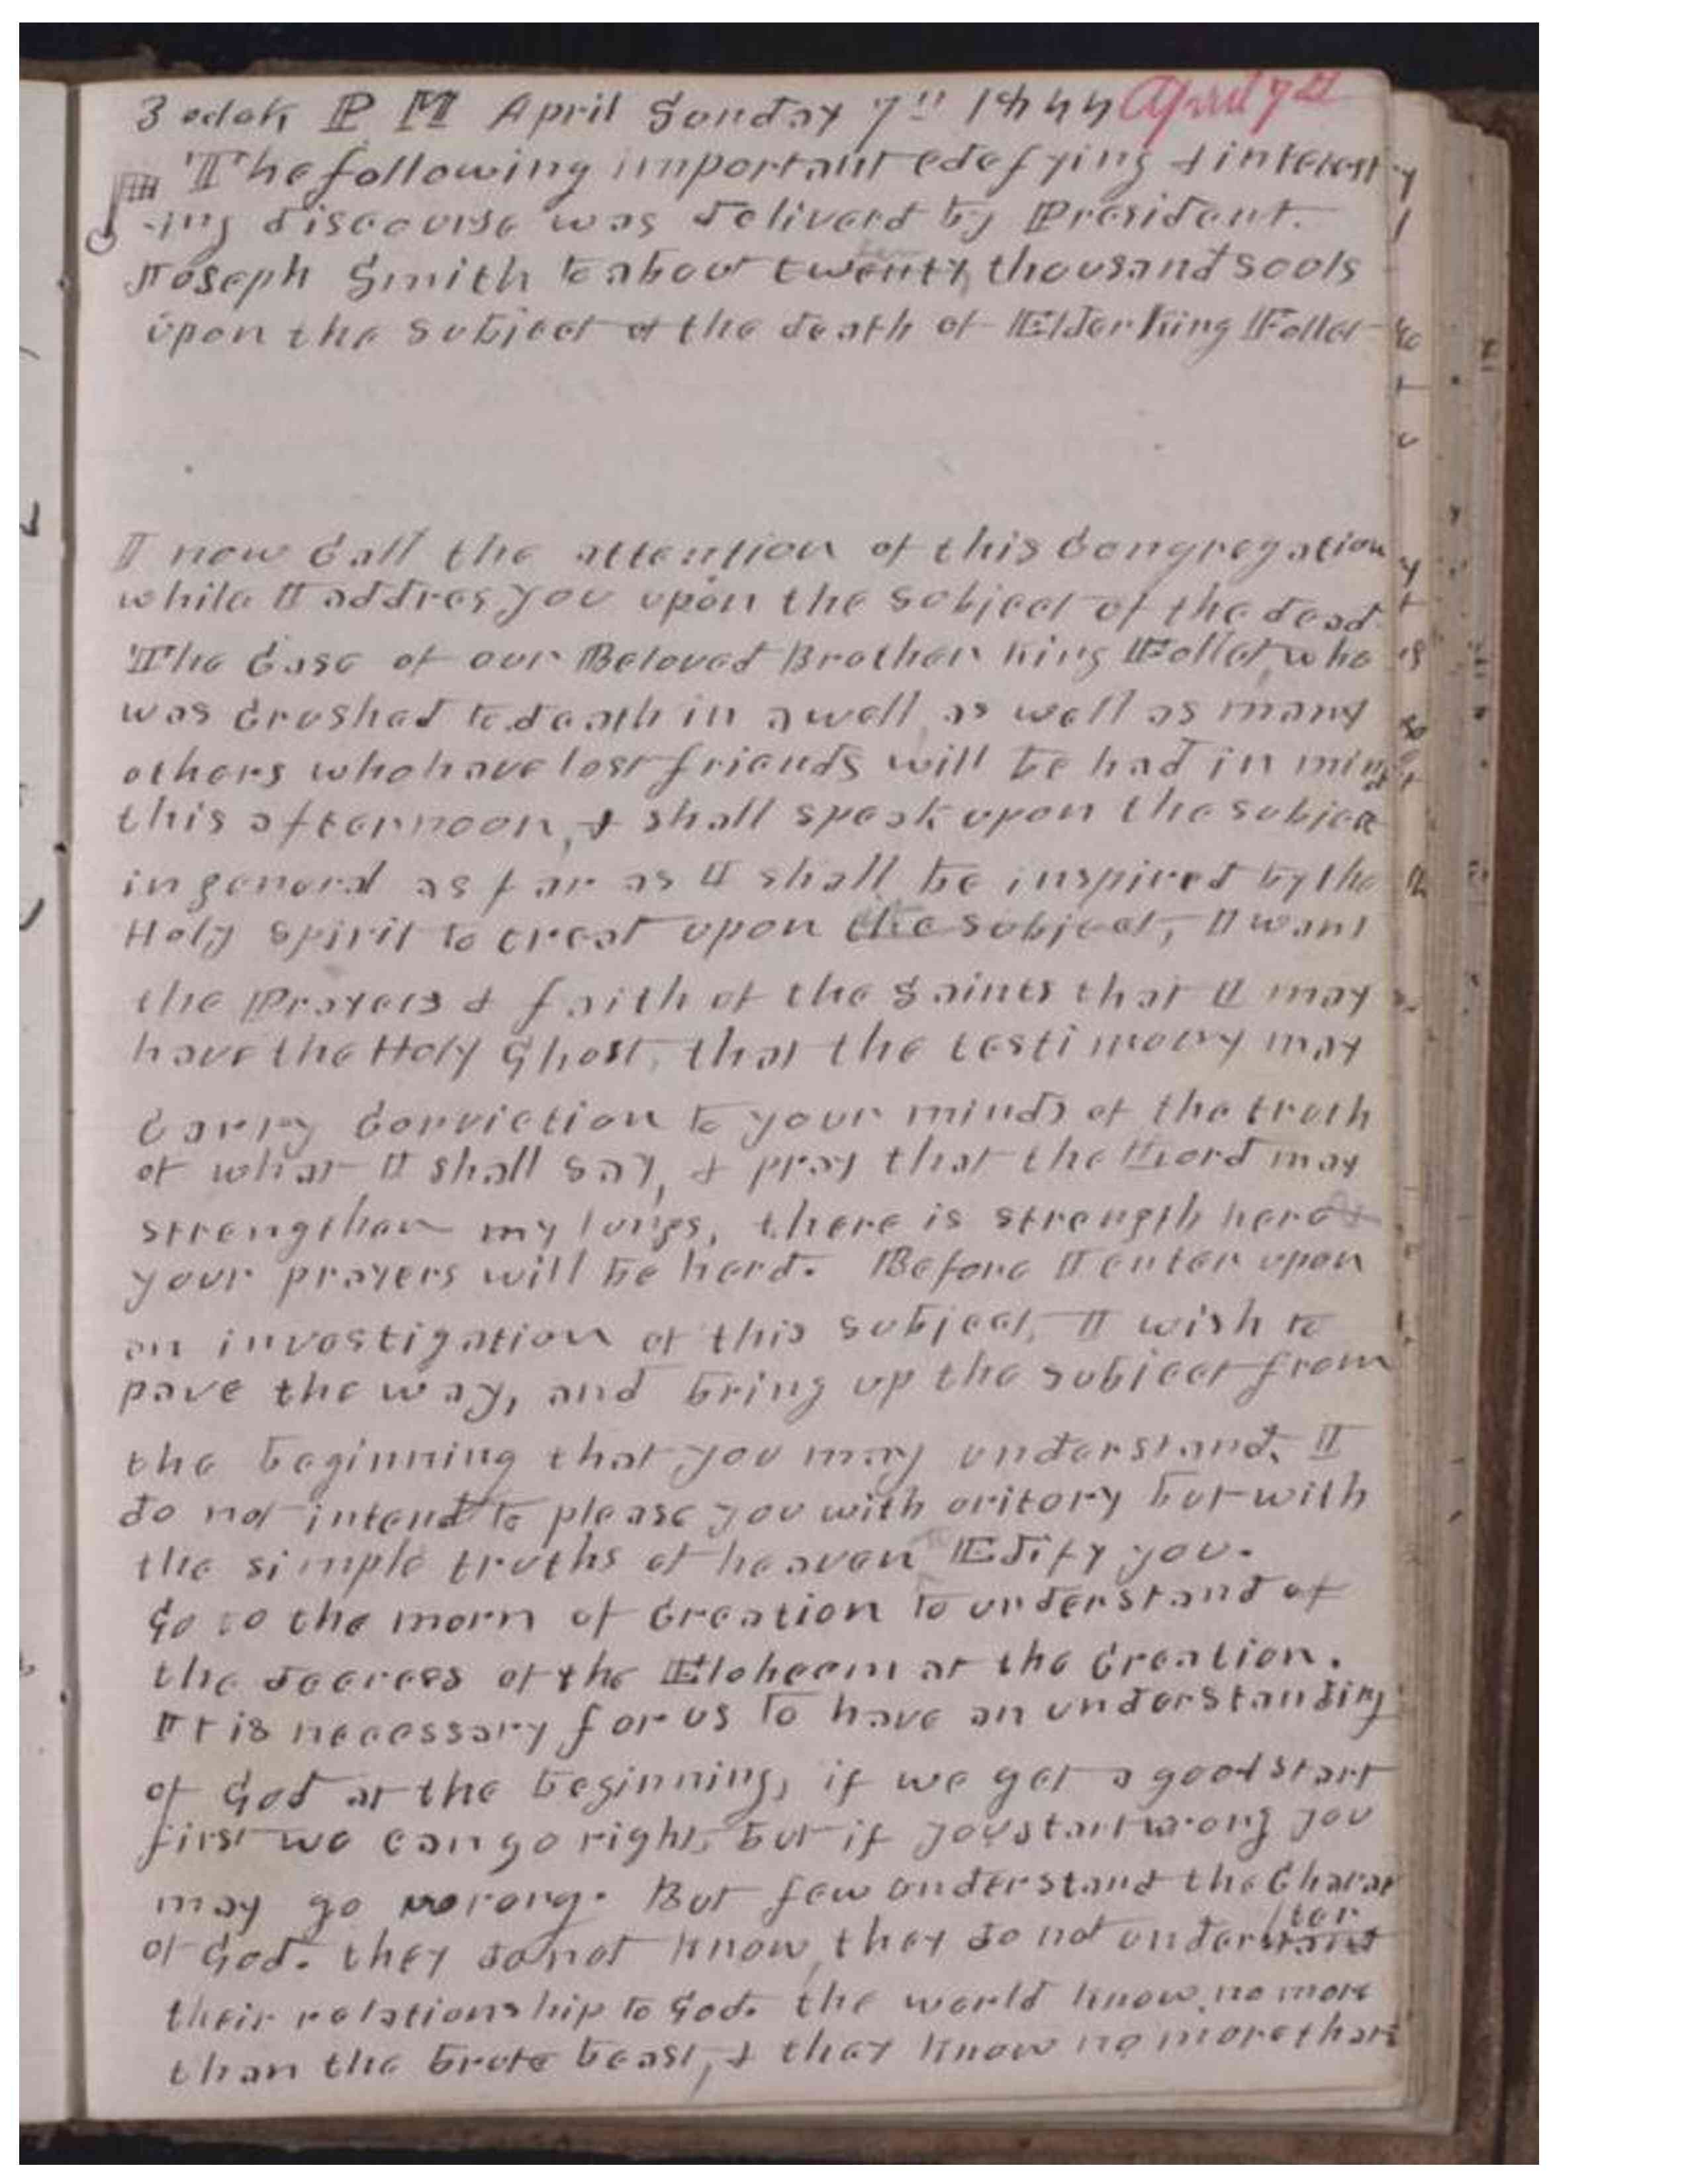 3 oclok P M April Sunday 7th 1844 April 7th
The following important edefying & interest
-ing discourse was deliverd by President.
Joseph Smith to about twenty thousand souls
upon the subject of the death of Elder King Follet
I now Call the attention of this Congregation
while I addres you upon the subject of the dead.
The Case of our Beloved Brother King Follet, who
was Crushed to death in a well as well as many
others who have lost friends will be had in mind
this afternoon, & shall speak upon the subject
in general as far as I shall be inspired by the
Holy Spirit to treat upon the subject, I want
the Prayers & faith of the Saints that I may
have the Holy Ghost, that the testimony may
Carry Conviction to your minds of the truth
of what I shall say, & pray that the Lord may
strengthen my lungs, there is strength here &
your prayers will be herd. Before I enter upon
an investigation of this subject, I wish to
pave the way, and bring up the subject from
the beginning that you may understand. I
do not intend to please you with oritory but with
the simple truths of heaven Edify you.
Go to the morn of Creation to understand of
the decrees of the Eloheem at the Creation.
It is necessary for us to have an understanding
of God at the beginning, if we get a good start
first we can go right, but if you start wrong you
may go wrong. But few understand the Charac
ter
of God. they do not know, they do not understand
their relationship to God. the world know no more
than the brute beast, & they know no more than